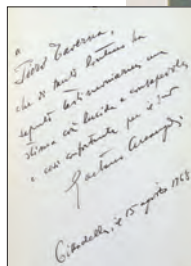 a
Taverna,
che di tanto lontano ha
saputo testimoniarmi una
stima così lucida e consapevole
e così confortante per i suoi
Gaetano
Cittadella, il 15 agosto 1968